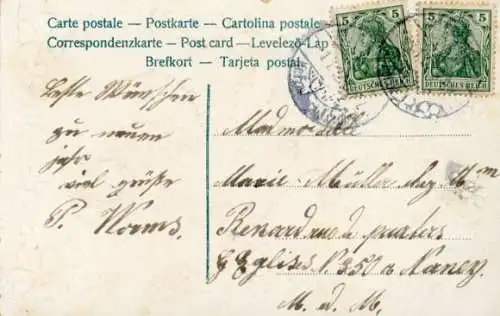 Carte postale — Postkarte — Cartolina postale
Correspondenzkarte — Post card — Levelező-Lap
Brefkort — Tarjeta postal
5 5
DEUTSCHES REICH
5 5
DEUTSCHES REICH
beste Wünschen
zu neuen
jahr
viel grüße
P. Worms.
Mademoiselle
Marie Müller
Renard rue de
Eglises N. 250 a Nancy
M. d. M.